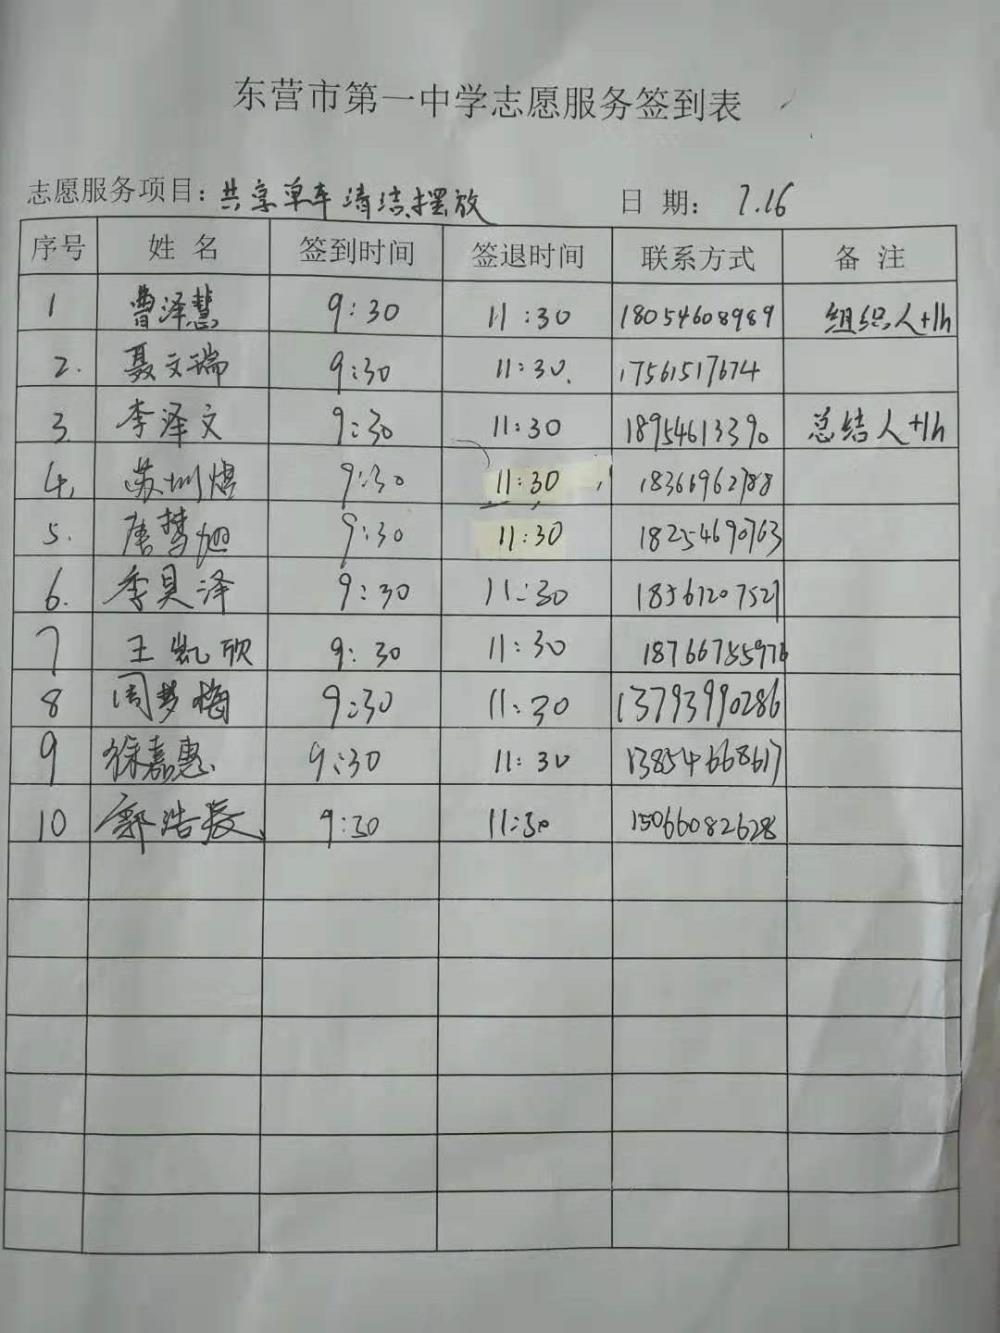 东营市第一中学志愿服务签到表
志愿服务项目：共享单车清洁摆放 日 期： 7.16
序号 姓 名 签到时间 签退时间 联系方式 备 注
1 曹泽慧 9:30 11:30 18054608989 组织人+1h
2. 聂文瑞 9:30 11:30. 17561517674
3. 李泽文 9:30 11:30 18954613390 总结人+1h
4. 苏圳熠 9:30 11:30 18366962788
5. 唐梦旭 9:30 11:30 18254690763
6. 季昊泽 9:30 11:30 18561207527
7 王凯欣 9:30 11:30 18766755976
8 周梦梅 9:30 11:30 13793990286
9 徐嘉惠 9:30 11:30 13854668617
10 郭浩 9:30 11:30 15066082628